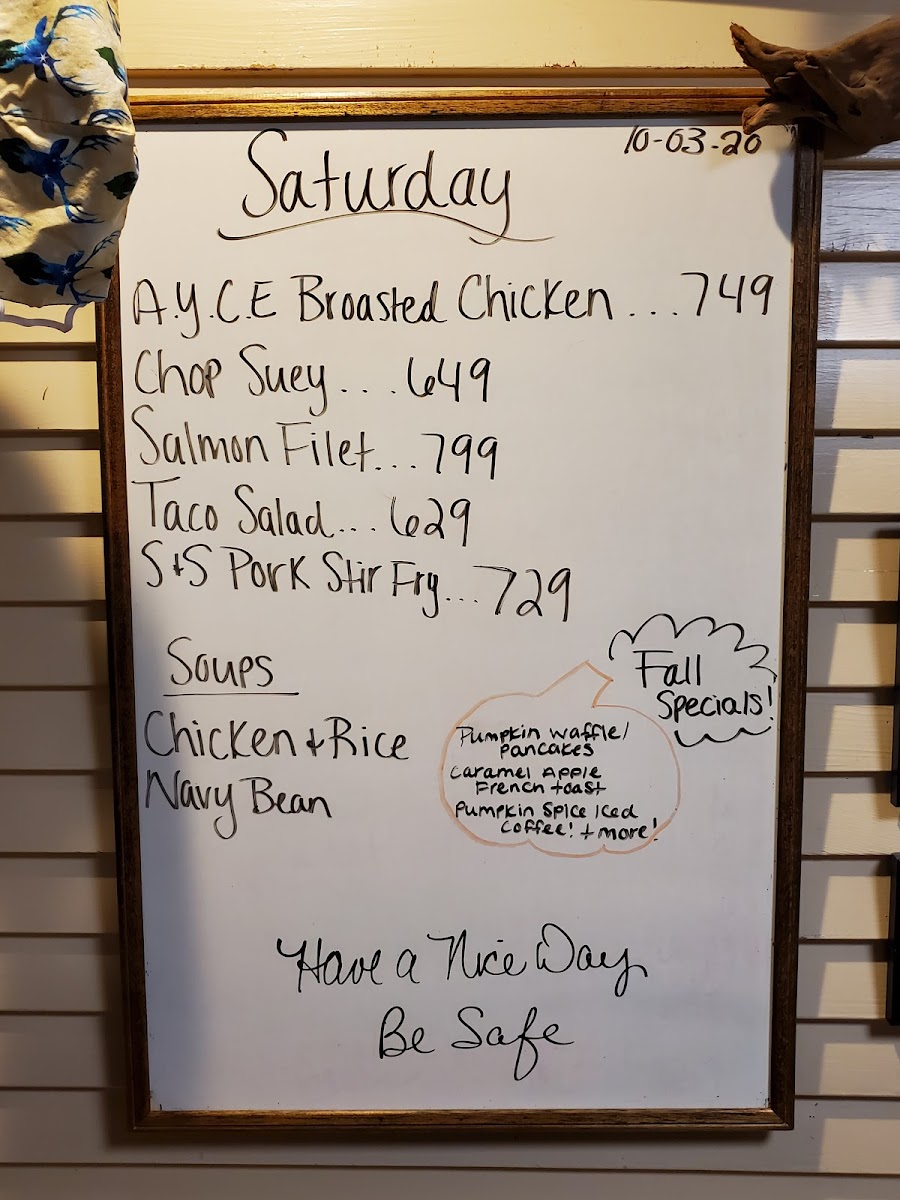 10-03-20
Saturday
A.Y.C.E Broasted Chicken ... 749
Chop Suey... 649
Salmon Filet... 799
Taco Salad... 629
S+S Pork Stir Fry... 729
Soups
Chicken + Rice
Navy Bean
Fall
Specials!
Pumpkin waffle/
pancakes
Caramel Apple
French toast
Pumpkin Spice Iced
Coffee! + more!
Have a Nice Day
Be Safe